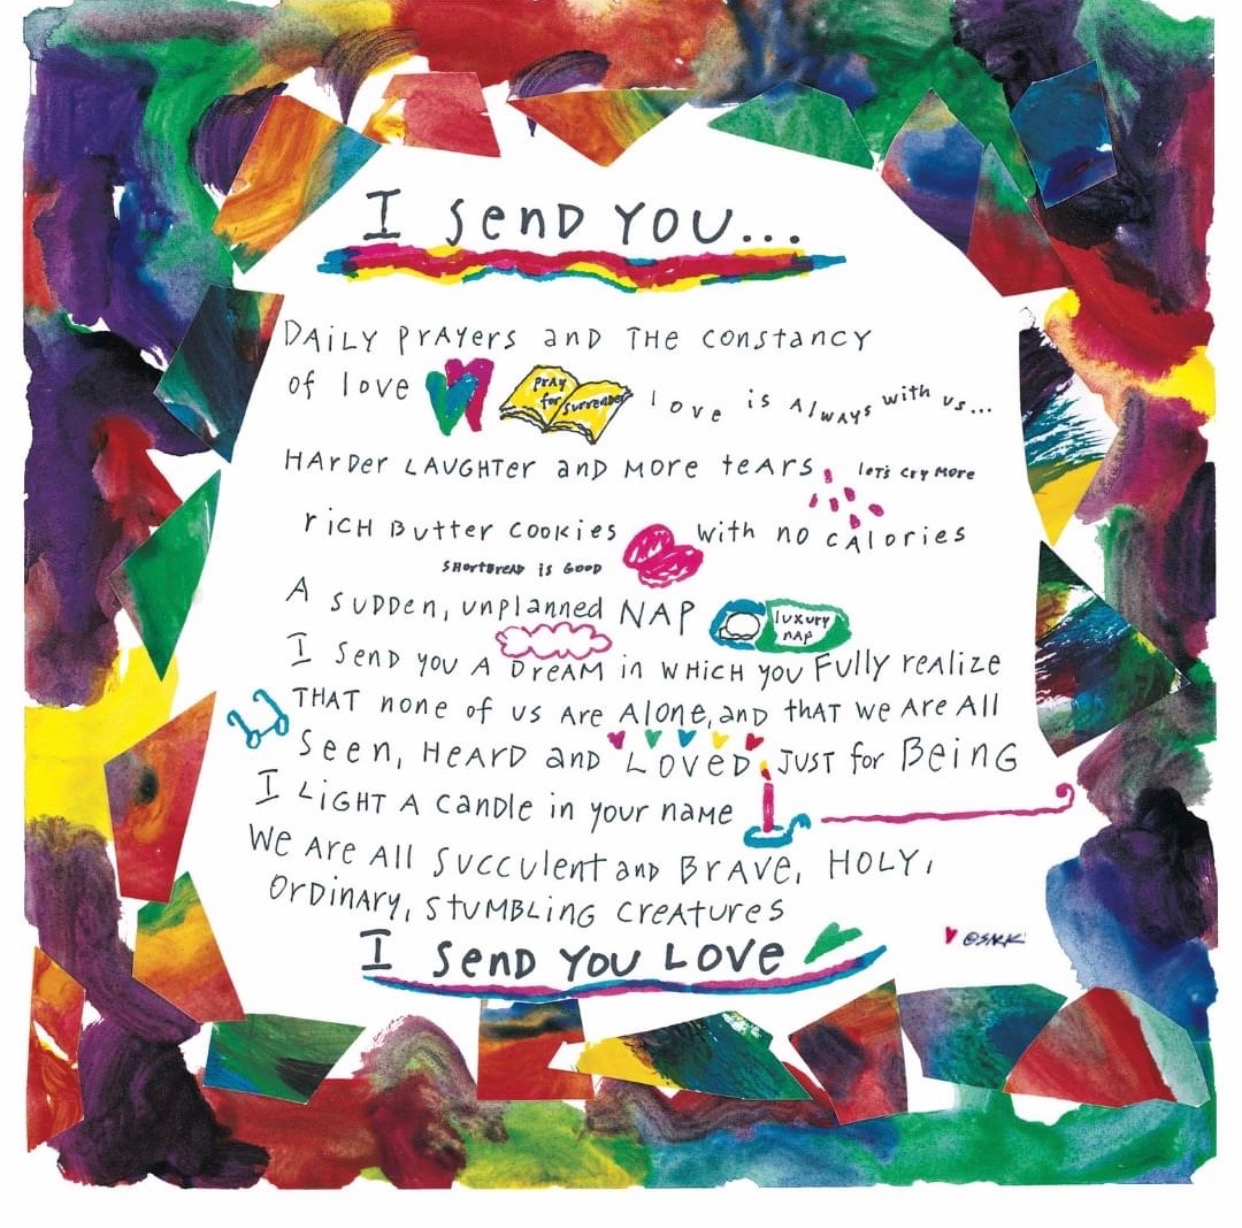 I SenD YOU...
DAiLY PrAYers anD THe constancy
of love
PrAy for Surrender
love is Always with us...
HArDer LAUGHTer anD More teArs
leT's cry More
riCH Butter cookies with no cAlories
SHortBreAD is GooD
A suDDen, unplanned NAP
luxury nAp
I SenD you A DreAM in wHicH you Fully reAlize
THAT none of us Are Alone, anD thAT we Are All
Seen, HeArD anD LoveD JUST for Being
I LiGHT A canDle in your nAMe
We Are All Succulent anD BrAve, HOLY,
OrDinary, StuMBLing creAtures
I SenD YoU LOVe
©SARK